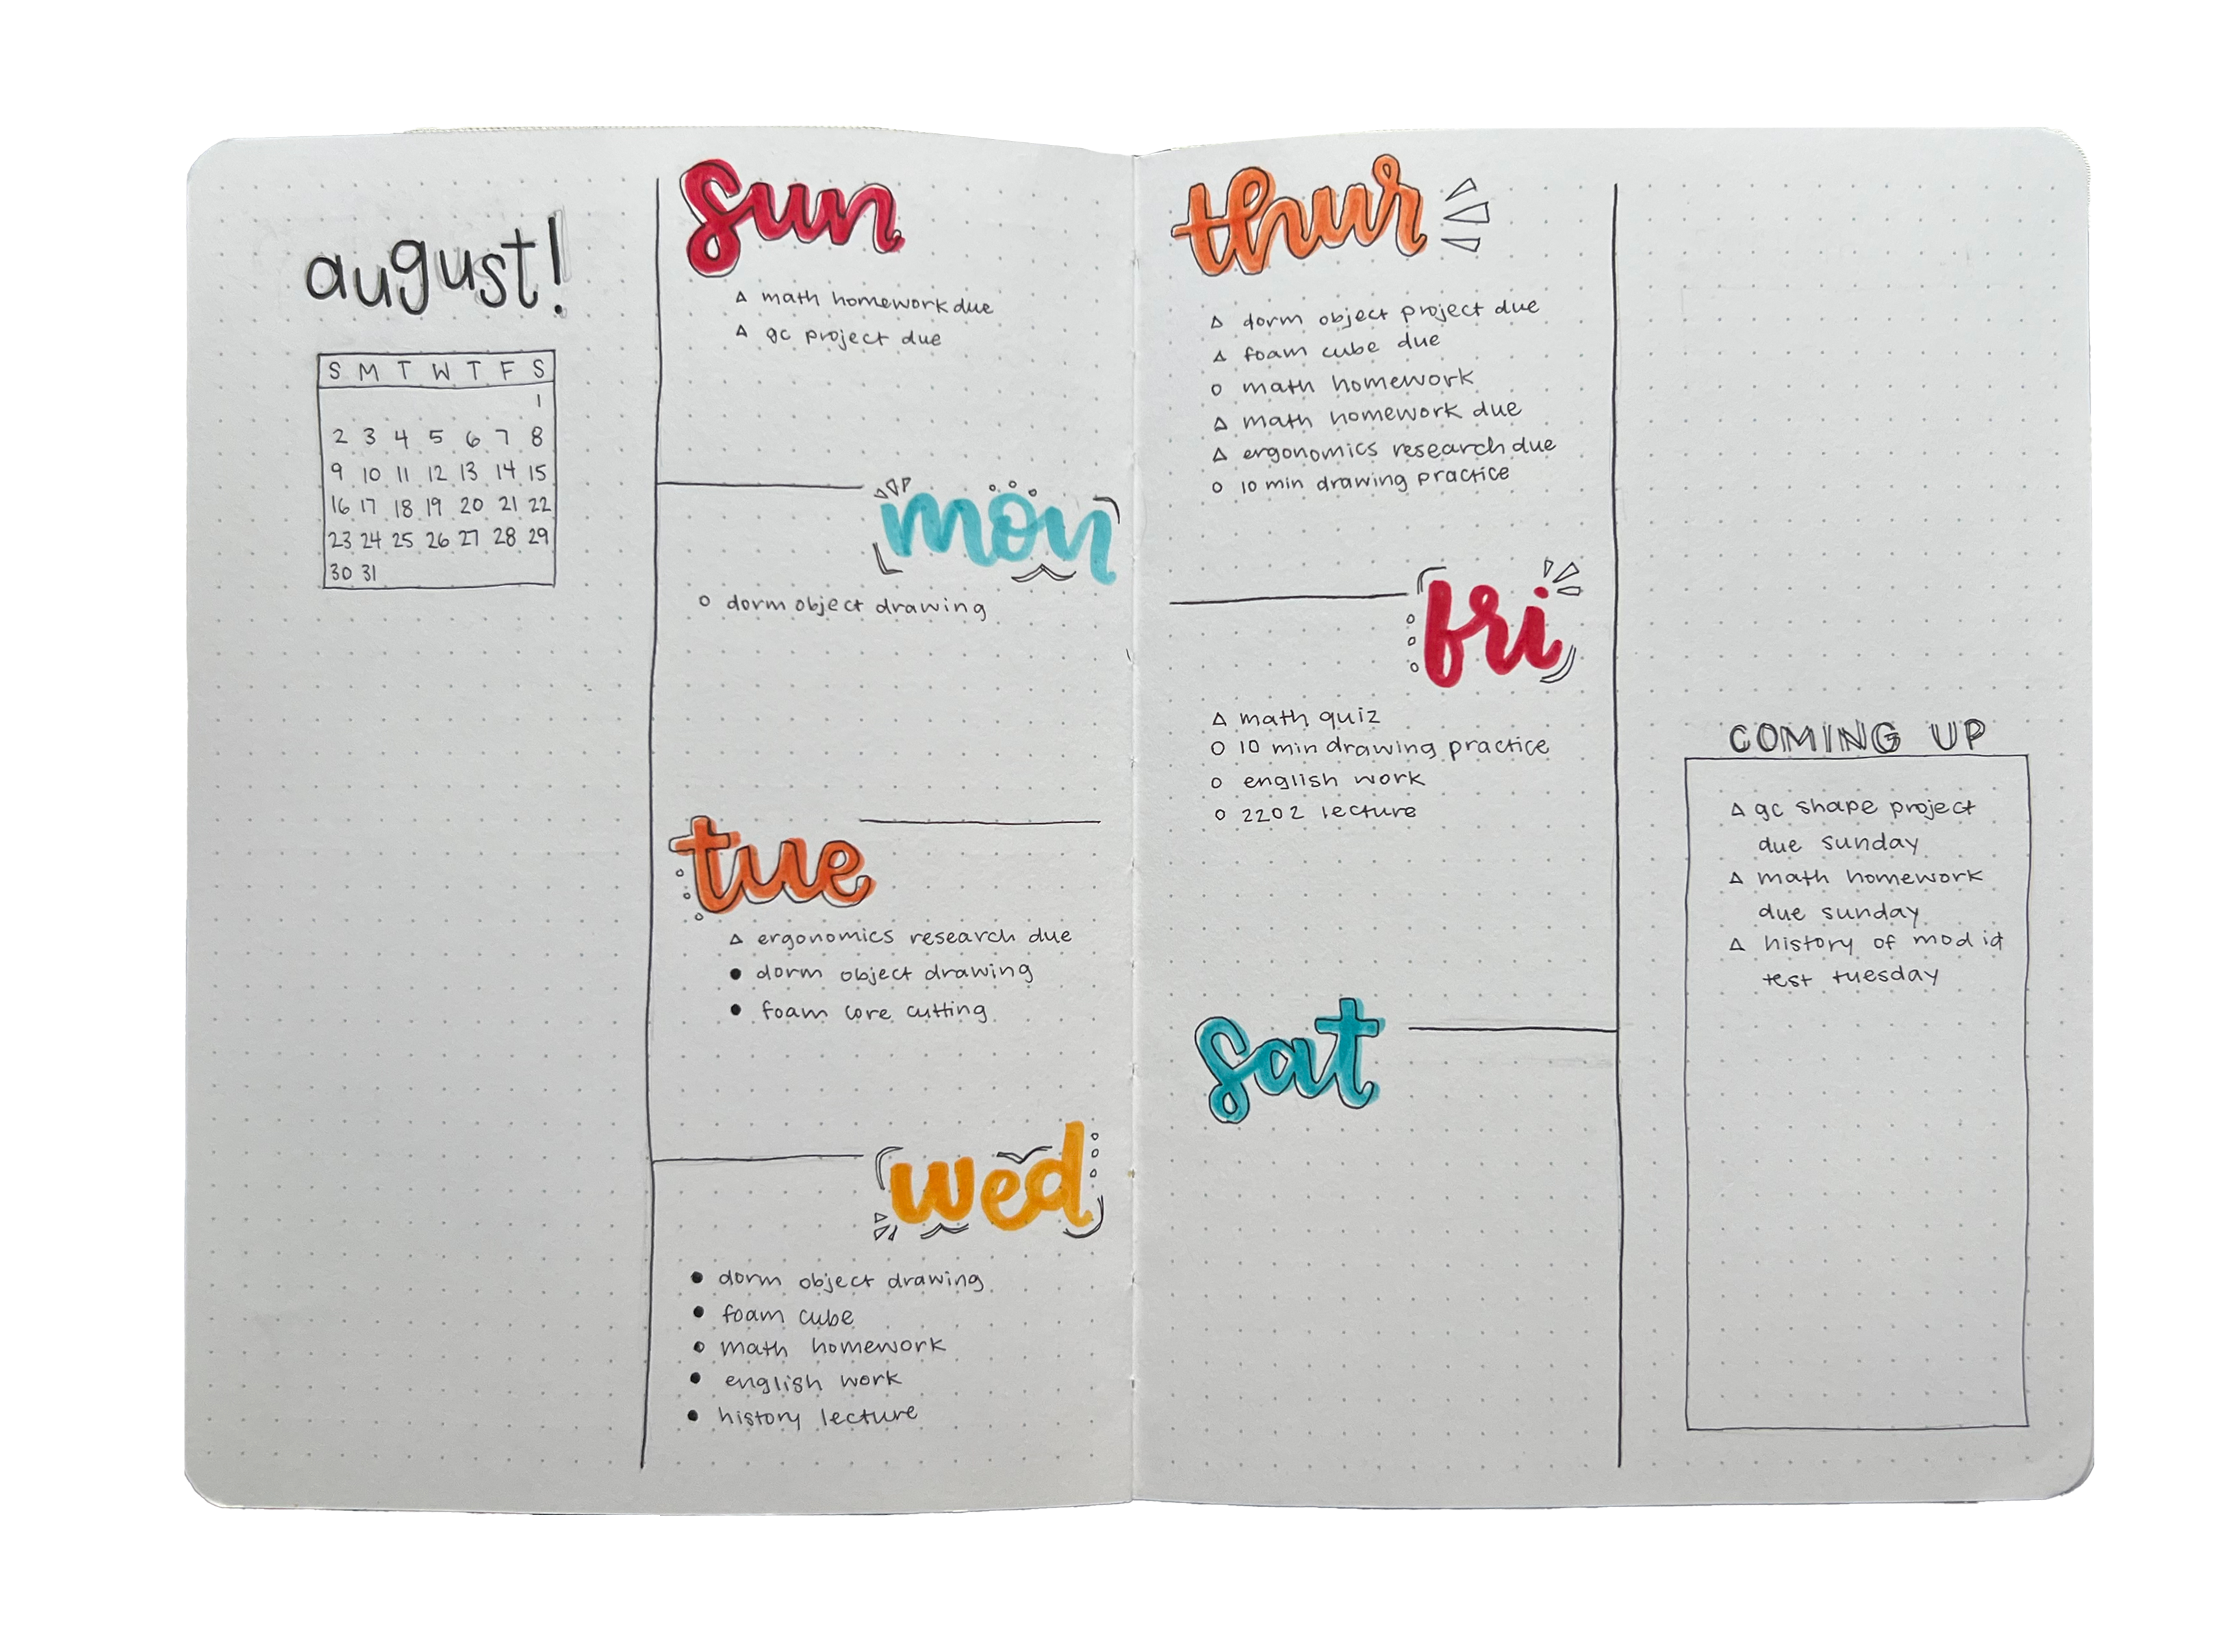 august!
S M T W T F S
1
2 3 4 5 6 7 8
9 10 11 12 13 14 15
16 17 18 19 20 21 22
23 24 25 26 27 28 29
30 31
sun
△ math homework due
△ gc project due
mon
○ dorm object drawing
tue
△ ergonomics research due
● dorm object drawing
● foam core cutting
wed
● dorm object drawing
● foam cube
○ math homework
● english work
● history lecture
thur
△ dorm object project due
△ foam cube due
○ math homework
△ math homework due
△ ergonomics research due
○ 10 min drawing practice
fri
△ math quiz
○ 10 min drawing practice
○ english work
○ 2202 lecture
sat
COMING UP
△ gc shape project
due sunday
△ math homework
due sunday
△ history of mod id
test tuesday